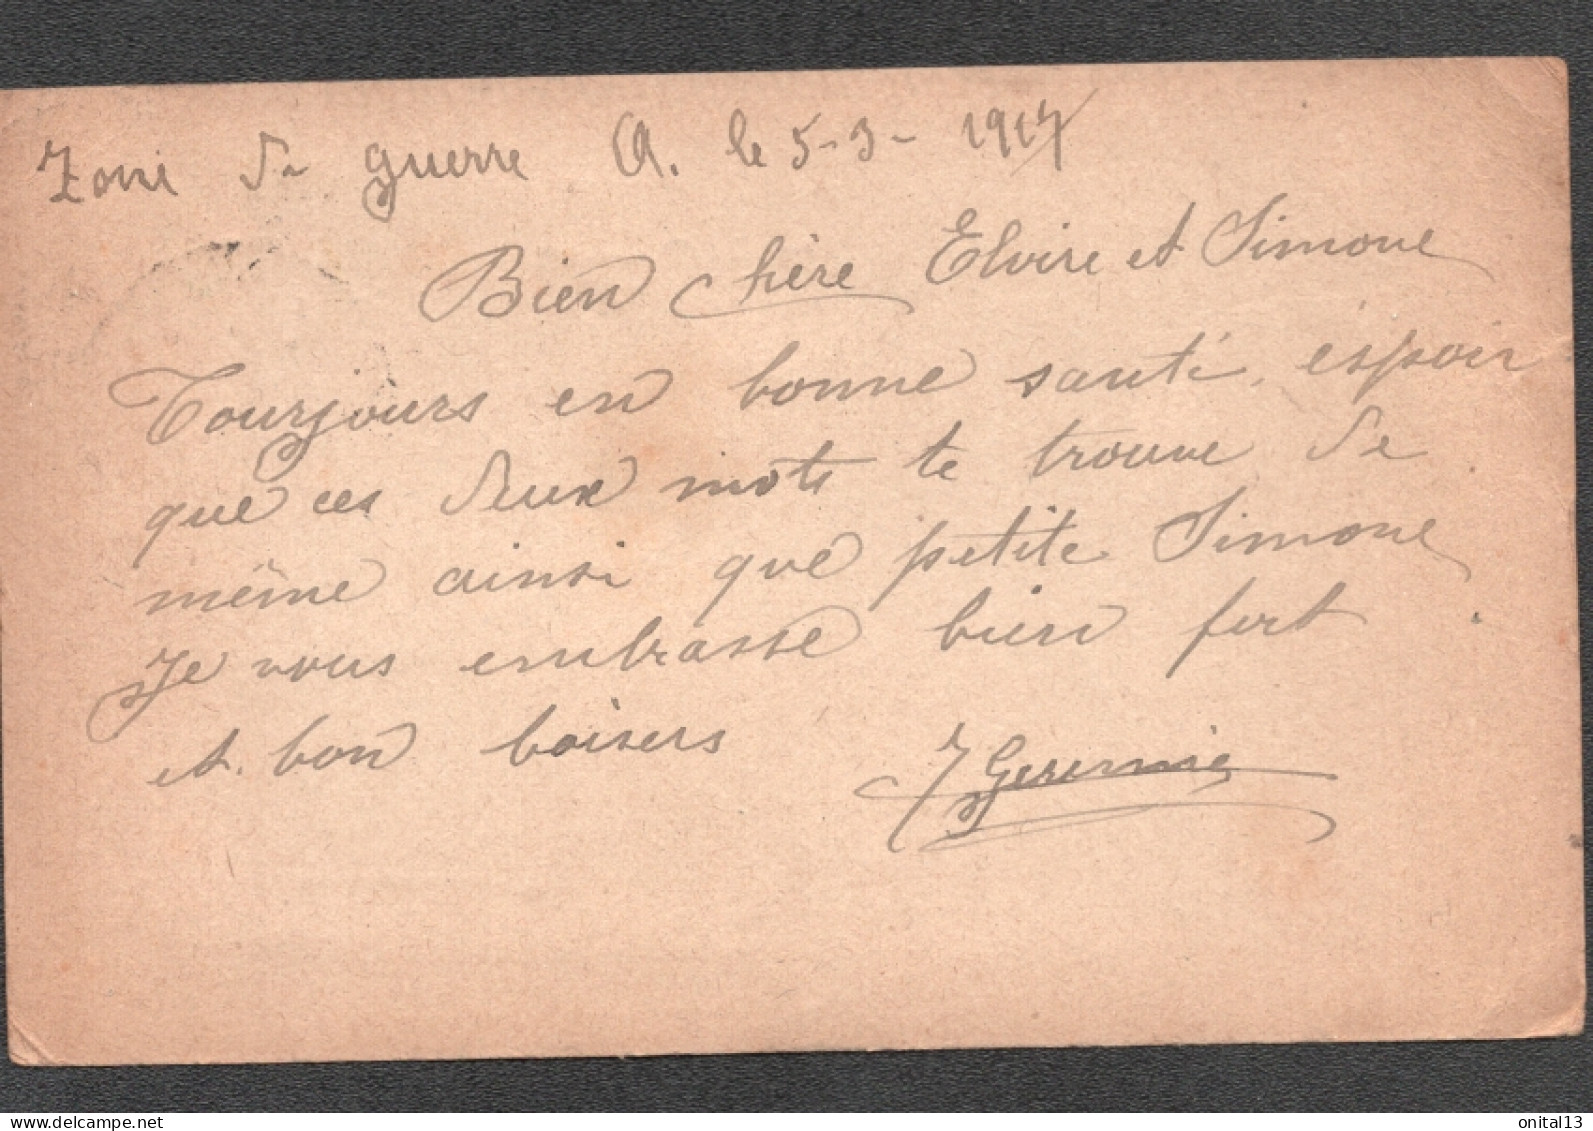 Zone de guerre A. le 5-3-1917
Bien chère Elvire et Simone
Tourjours en bonne santé. espoir
que ces deux mots te trouve de
même ainsi que petite Simone
Je vous embrasse bien fort
et bon baisers
onital13